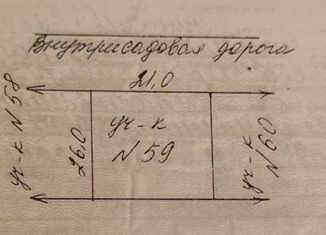 Внутрисадовая дорога
21,0
уч-к N58
26,0
уч-к
N59
уч-к
N60